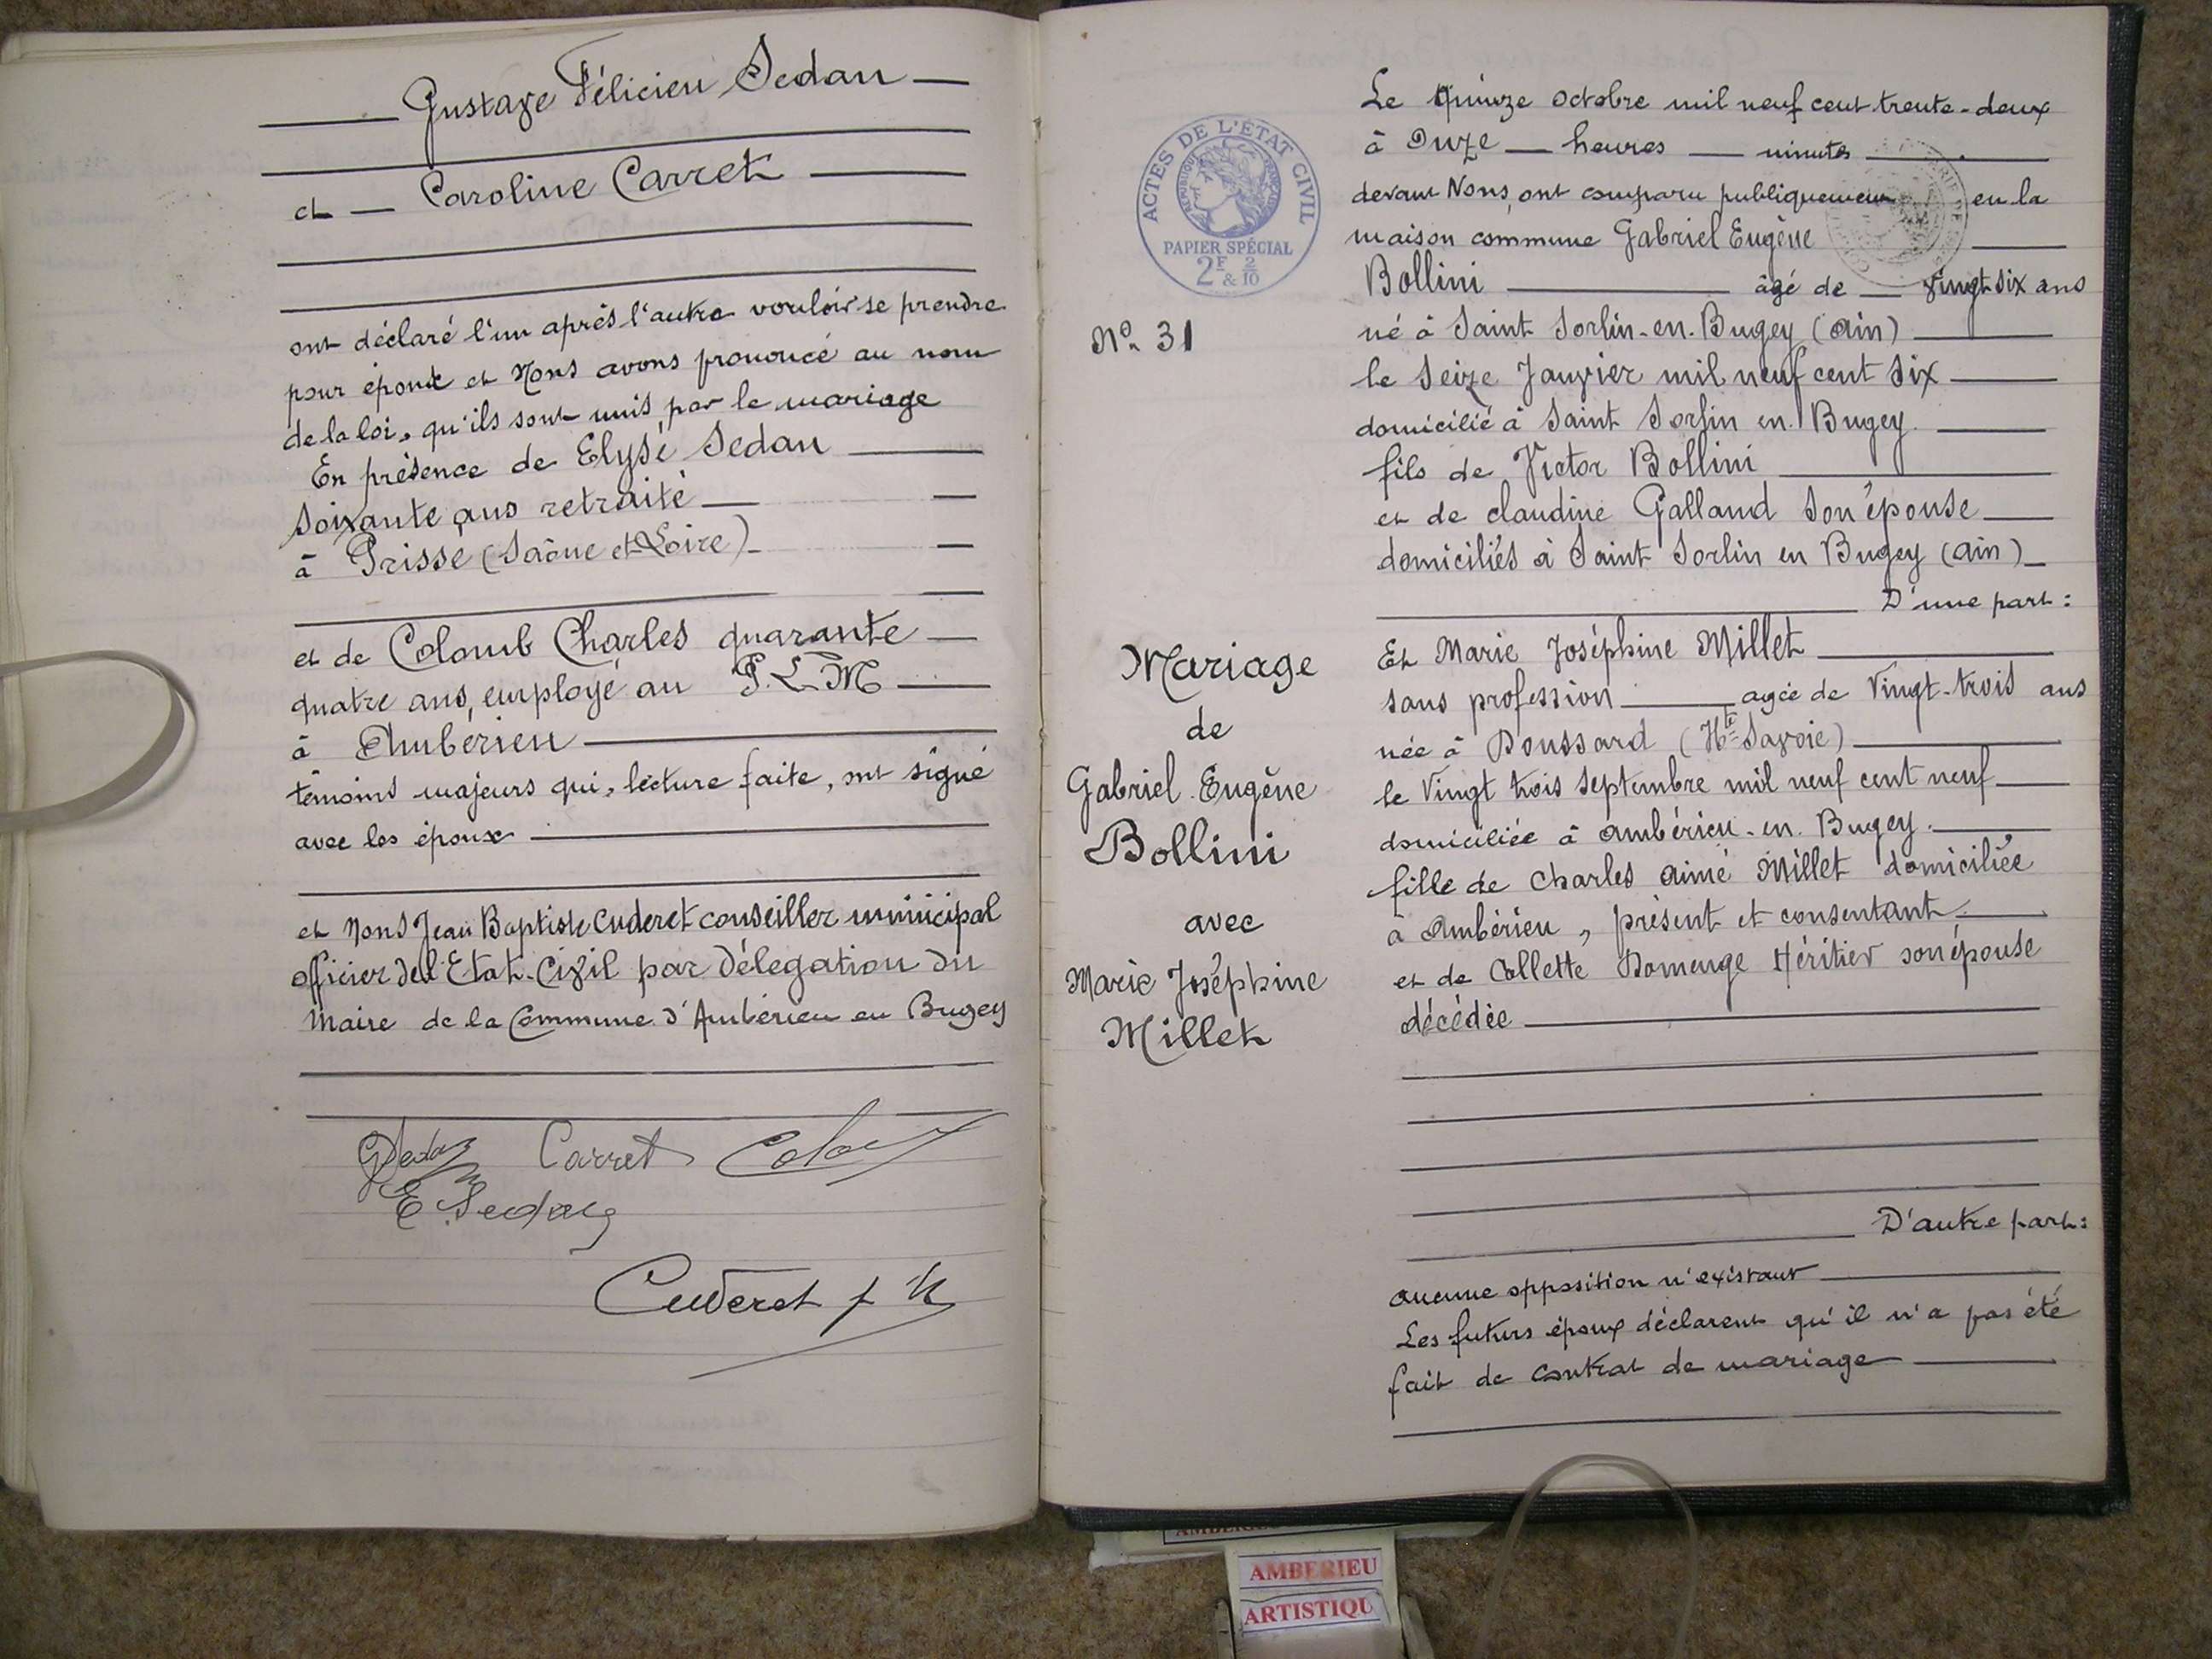 Gustave Félicien Sedan
et Caroline Carret
ont déclaré l'un après l'autre vouloir se prendre
pour époux et Nous avons prononcé au nom
de la loi, qu'ils sont unis par le mariage
En présence de Elysé Sedan
soixante ans retraité
à Prissé (Saône et Loire)
et de Colomb Charles quarante
quatre ans, employé au P.L.M
à Ambérieu
témoins majeurs qui, lecture faite, ont signé
avec les époux
et Nous Jean Baptiste Cuderet conseiller municipal
officier de l'Etat-Civil par délégation du
Maire de la Commune d'Ambérieu en Bugey
G Sedan Carret
E. Sedan
Cuderet
ACTES DE L'ÉTAT CIVIL
RÉPUBLIQUE FRANÇAISE
PAPIER SPÉCIAL
2F & 2/10
No 31
Mariage
de
Gabriel Eugène
Bollini
avec
Marie Joséphine
Millet
Le Quinze octobre mil neuf cent trente-deux
à Onze heures minutes
devant Nous, ont comparu publiquement en la
maison commune Gabriel Eugène
Bollini âgé de vingt six ans
né à Saint Sorlin-en-Bugey (Ain)
le Seize Janvier mil neuf cent six
domicilié à Saint Sorlin en Bugey.
fils de Victor Bollini
et de claudine Galland son épouse
domiciliés à Saint Sorlin en Bugey (Ain)
D'une part:
Et Marie Joséphine Millet
sans profession agée de Vingt-trois ans
née à Doussard (Hte Savoie)
le Vingt trois Septembre mil neuf cent neuf
domiciliée à Ambérieu-en-Bugey.
fille de Charles Aimé Millet domiciliée
à Ambérieu, présent et consentant
et de Collette Domenge Héritier son épouse
décédée
D'autre part:
aucune opposition n'existant
Les futurs époux déclarent qu'il n'a pas été
fait de contrat de mariage
AMBERIEU
ARTISTIQU